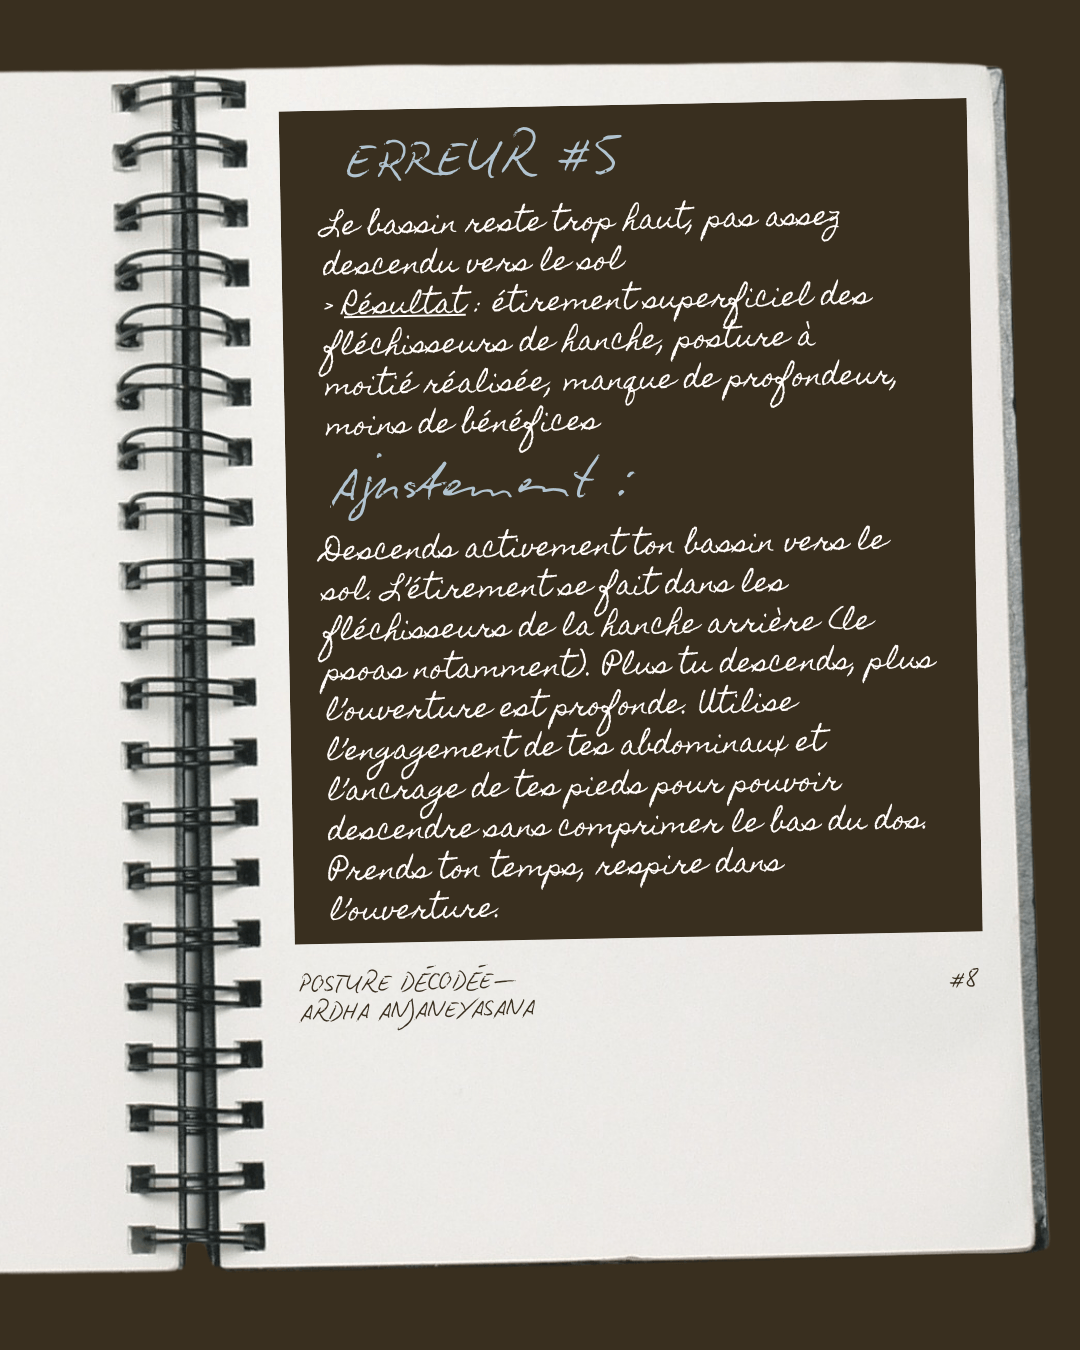 ERREUR #5
Le bassin reste trop haut, pas assez
descendu vers le sol
> Résultat : étirement superficiel des
fléchisseurs de hanche, posture à
moitié réalisée, manque de profondeur,
moins de bénéfices
Ajustement :
Descends activement ton bassin vers le
sol. L'étirement se fait dans les
fléchisseurs de la hanche arrière (le
psoas notamment). Plus tu descends, plus
l'ouverture est profonde. Utilise
l'engagement de tes abdominaux et
l'ancrage de tes pieds pour pouvoir
descendre sans comprimer le bas du dos.
Prends ton temps, respire dans
l'ouverture.
POSTURE DÉCODÉE—
ARDHA ANJANEYASANA
#8